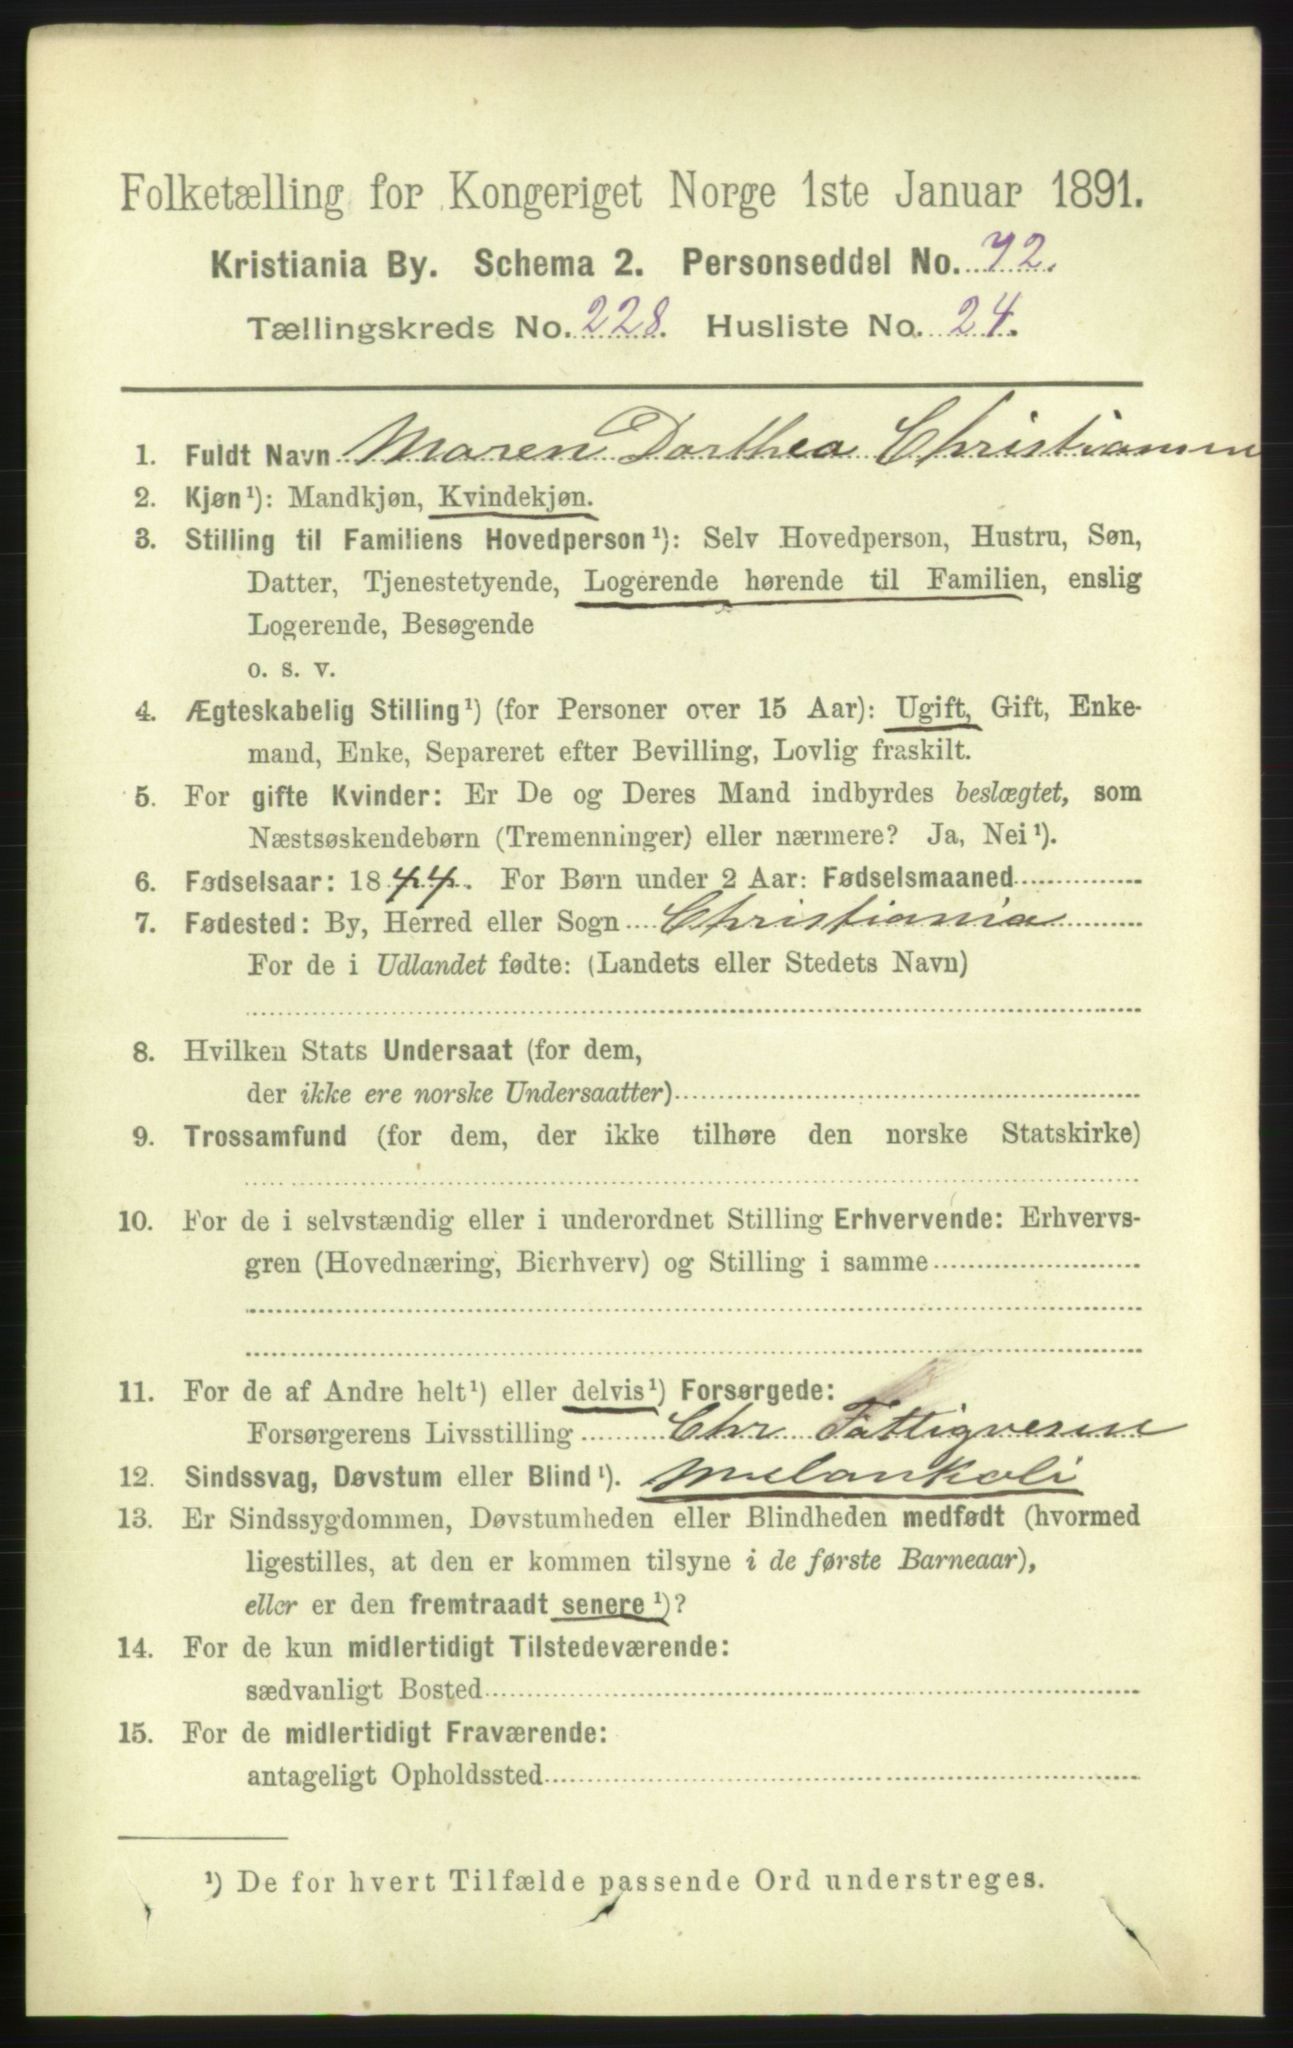 Folketælling for Kongeriget Norge 1ste Januar 1891.
Kristiania By. Schema 2. Personseddel No. 72.
Tællingskreds No. 228. Husliste No. 24.
1. Fuldt Navn Maren Dorthea Christiansen
2. Kjøn¹): Mandkjøn, Kvindekjøn.
3. Stilling til Familiens Hovedperson¹): Selv Hovedperson, Hustru, Søn,
Datter, Tjenestetyende, Logerende hørende til Familien, enslig
Logerende, Besøgende
o. s. v.
4. Ægteskabelig Stilling¹) (for Personer over 15 Aar): Ugift, Gift, Enke-
mand, Enke, Separeret efter Bevilling, Lovlig fraskilt.
5. For gifte Kvinder: Er De og Deres Mand indbyrdes beslægtet, som
Næstsøskendebørn (Tremenninger) eller nærmere? Ja, Nei¹).
6. Fødselsaar: 1844. For Børn under 2 Aar: Fødselsmaaned
7. Fødested: By, Herred eller Sogn Christiania
For de i Udlandet fødte: (Landets eller Stedets Navn)
8. Hvilken Stats Undersaat (for dem,
der ikke ere norske Undersaatter)
9. Trossamfund (for dem, der ikke tilhøre den norske Statskirke)
10. For de i selvstændig eller i underordnet Stilling Erhvervende: Erhvervs-
gren (Hovednæring, Bierhverv) og Stilling i samme
11. For de af Andre helt¹) eller delvis¹) Forsørgede:
Forsørgerens Livsstilling Chr Fattigvesen
12. Sindssvag, Døvstum eller Blind¹). Melankoli
13. Er Sindssygdommen, Døvstumheden eller Blindheden medfødt (hvormed
ligestilles, at den er kommen tilsyne i de første Barneaar),
eller er den fremtraadt senere¹)?
14. For de kun midlertidigt Tilstedeværende:
sædvanligt Bosted
15. For de midlertidigt Fraværende:
antageligt Opholdssted
¹) De for hvert Tilfælde passende Ord understreges.